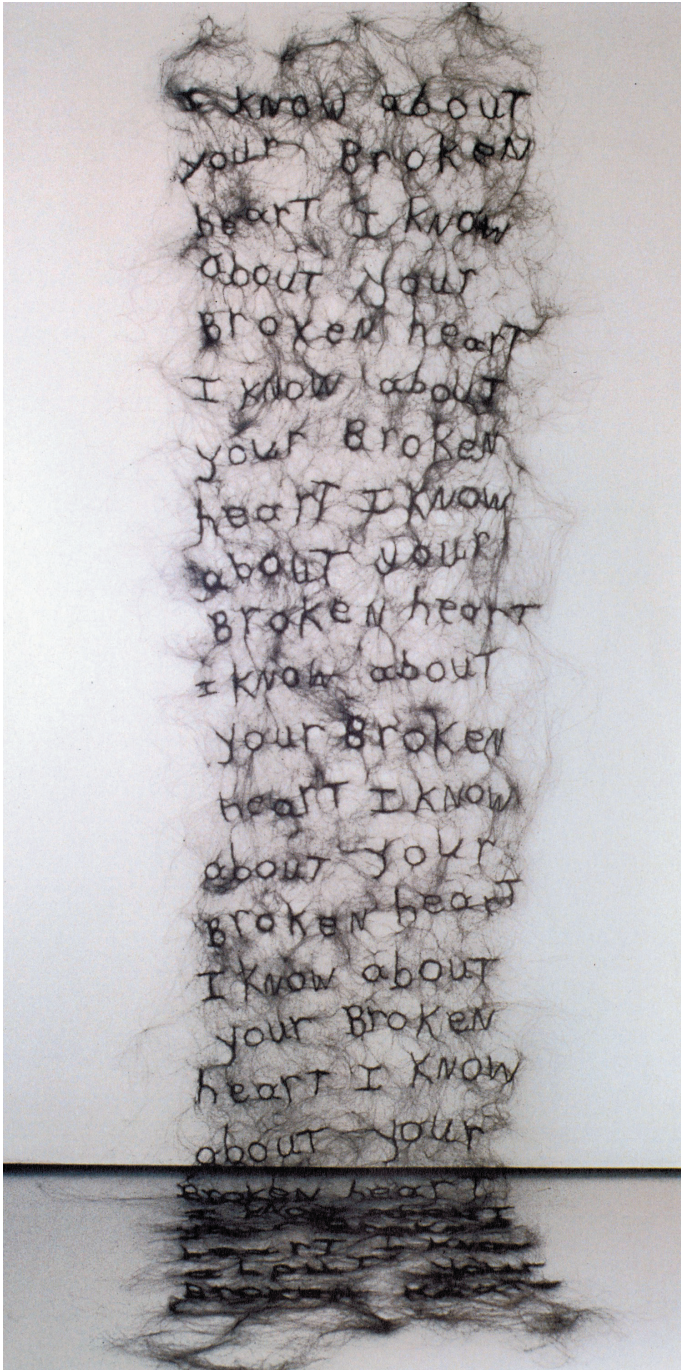 I KNOW abouT
your BroKeN
hearT I KNOW
abouT your
BroKeN hearT
I KNOW abouT
your BroKeN
hearT I KNOW
abouT your
BroKeN hearT
I KNOW abouT
your BroKeN
hearT I KNOW
abouT your
BroKeN hearT
I KNOW abouT
your BroKeN
hearT I KNOW
abouT your
BroKeN hearT
I KNOW abouT
your BroKeN
hearT I KNOW
abouT your
BroKeN